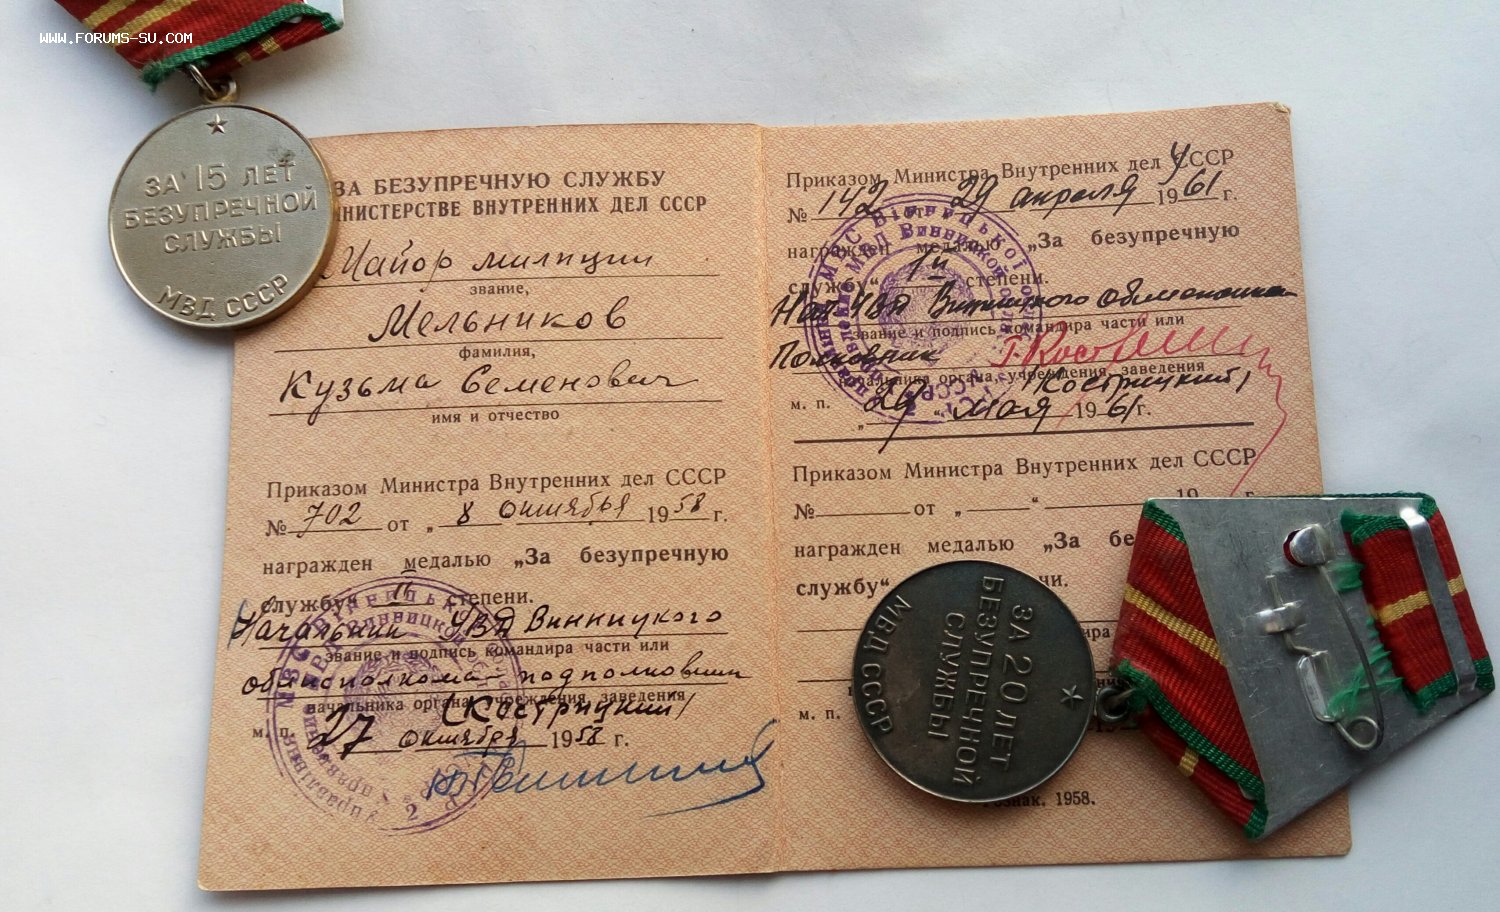 WWW.FORUMS-SU.COM
ЗА 15 ЛЕТ
БЕЗУПРЕЧНОЙ
СЛУЖБЫ
МВД СССР
ЗА БЕЗУПРЕЧНУЮ СЛУЖБУ
МИНИСТЕРСТВЕ ВНУТРЕННИХ ДЕЛ СССР
Майор милиции
звание,
Мельников
фамилия,
Кузьма Семенович
имя и отчество
Приказом Министра Внутренних дел СССР
№ 702 от „ 8 октября 1958 г.
награжден медалью „За безупречную
службу“ II степени.
Начальник УВД Винницкого
звание и подпись командира части или
облисполкома - подполковник
начальника органа, учреждения, заведения
(Кострицкий)
м. п. 27 октября 1958 г.
Приказом Министра Внутренних дел УССР
№ 142 от 29 апреля 1961 г.
награжден медалью „За безупречную
службу“ 1й степени.
Нач. УВД Винницкого облисполкома
звание и подпись командира части или
Полковник
начальника органа, учреждения, заведения
(Кострицкий)
м. п. „29“ мая 1961 г.
Приказом Министра Внутренних дел СССР
№ от „ “ 19 г.
награжден медалью „За бе
службу“
м. п.
ЗА 20 ЛЕТ
БЕЗУПРЕЧНОЙ
СЛУЖБЫ
МВД СССР
Гознак. 1958.